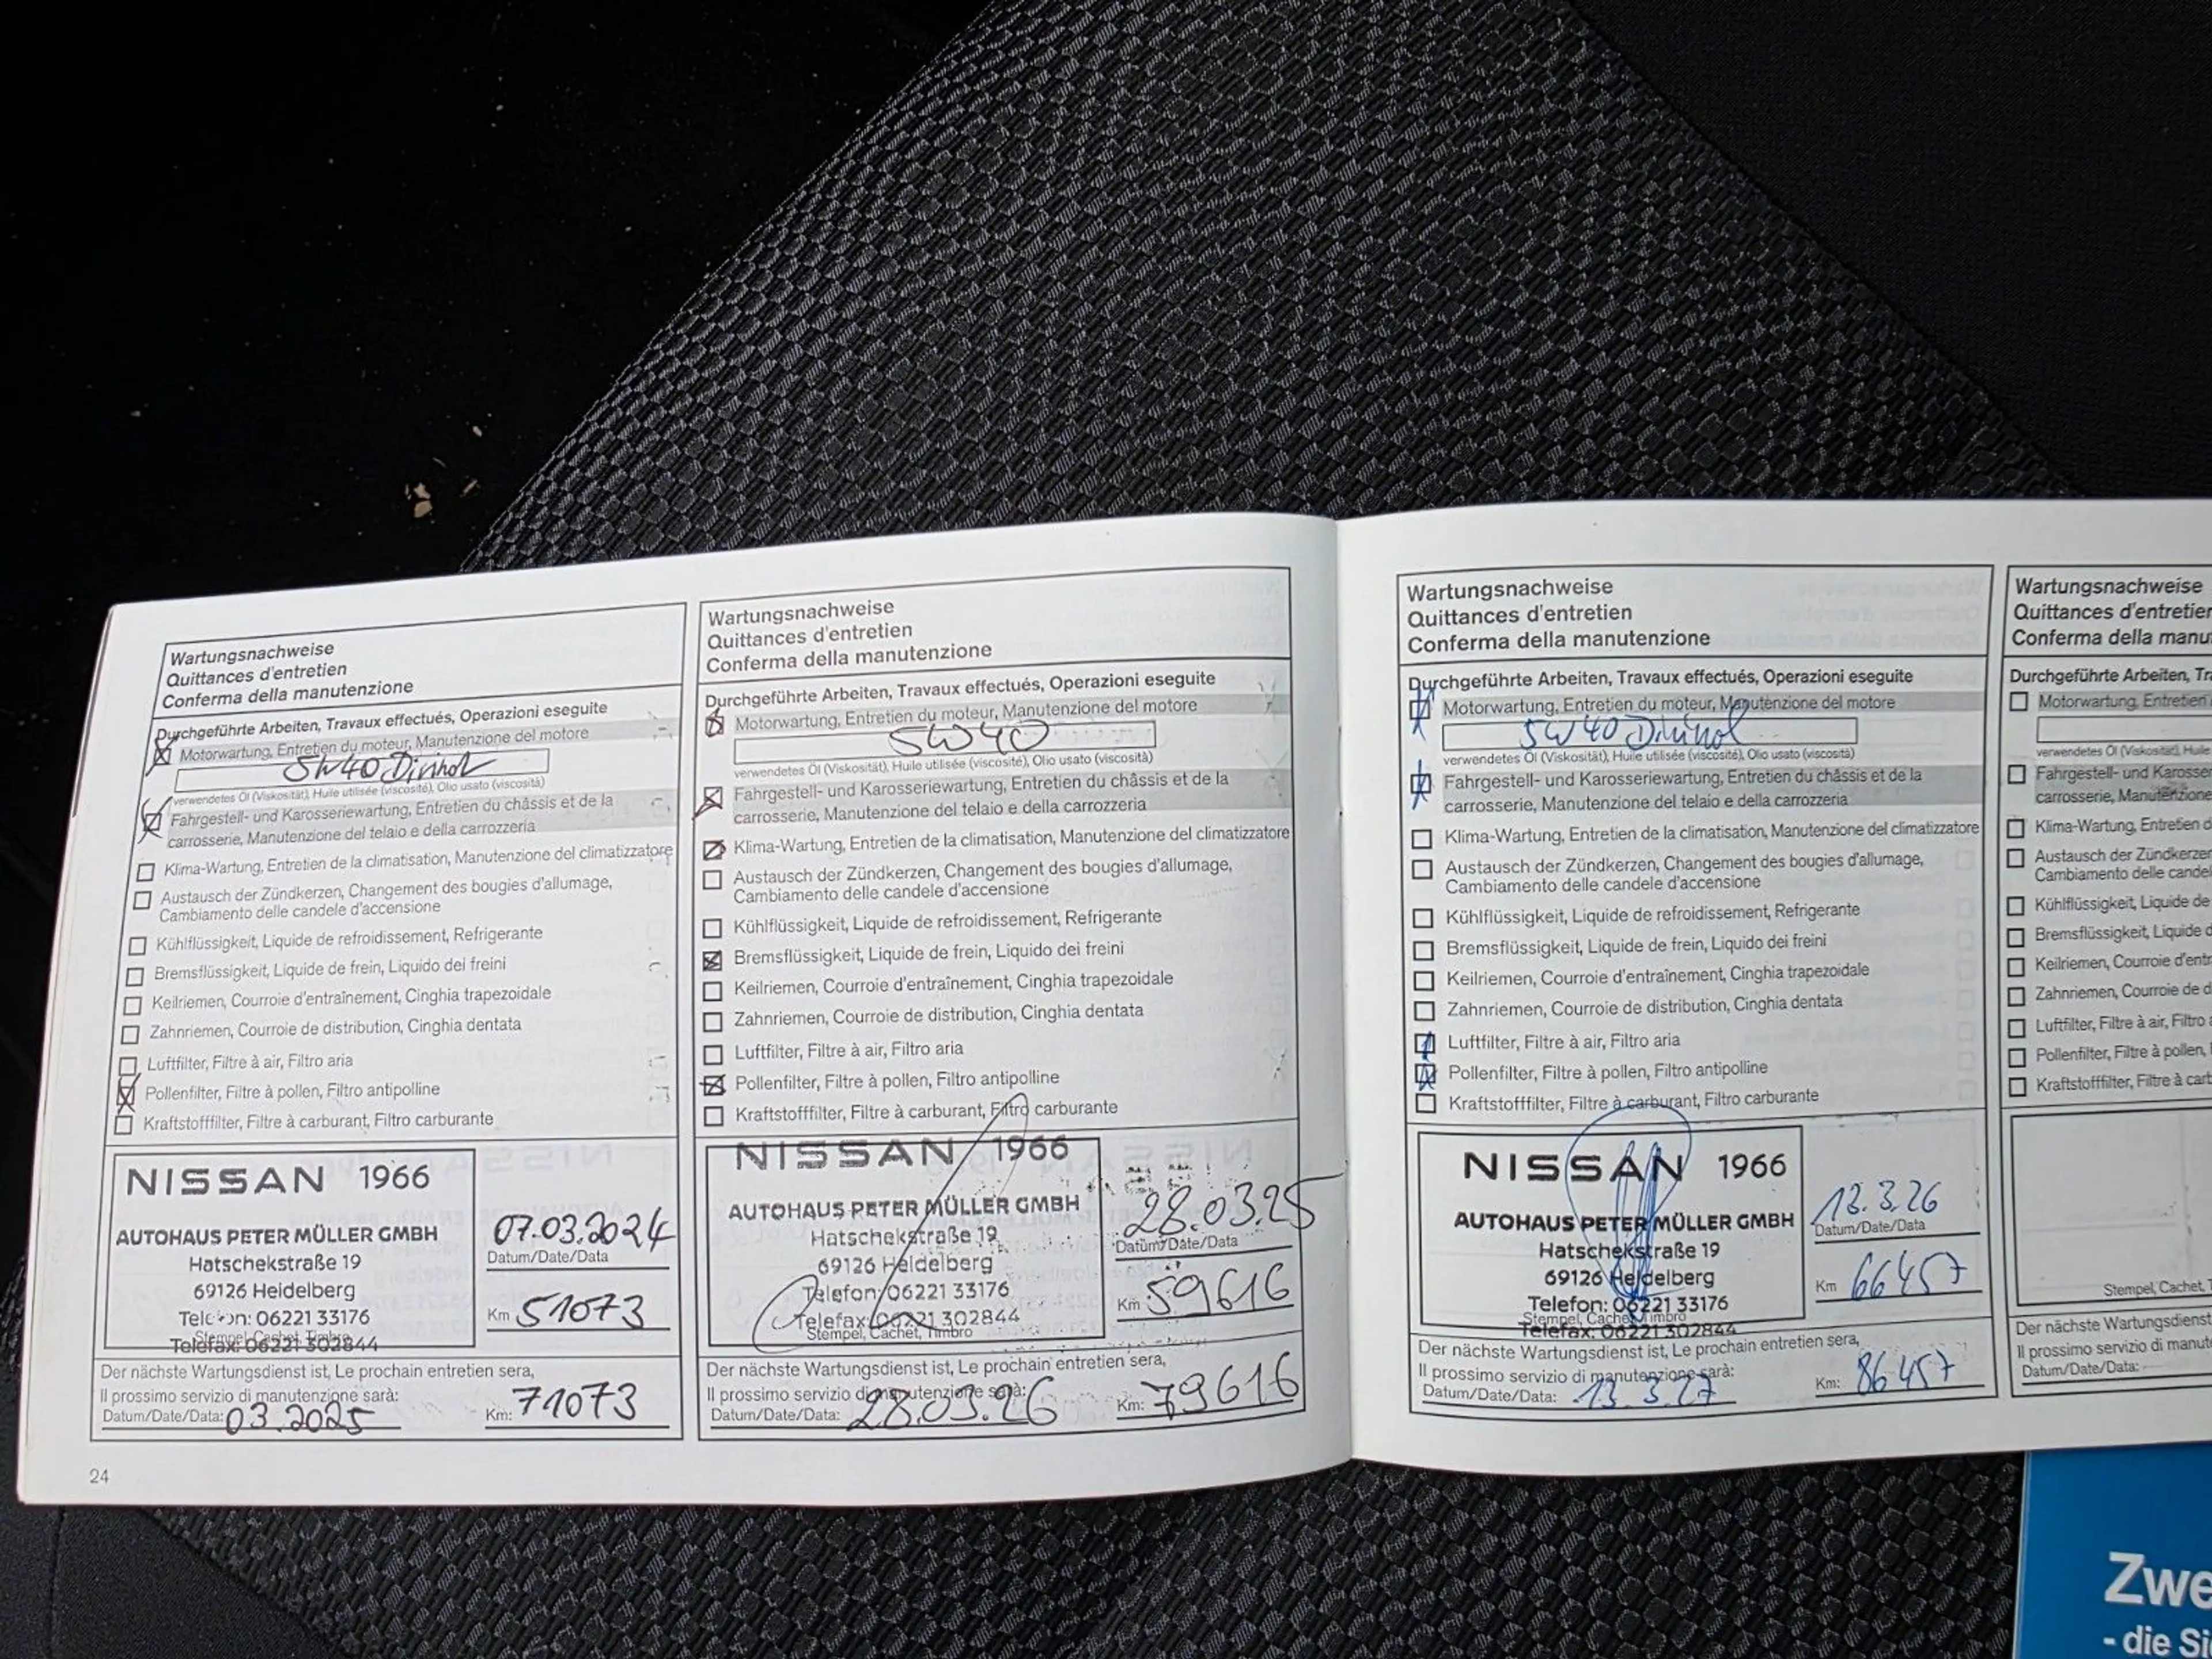 Wartungsnachweise
Quittances d'entretien
Conferma della manutenzione
Durchgeführte Arbeiten, Travaux effectués, Operazioni eseguite
Motorwartung, Entretien du moteur, Manutenzione del motore
5W40 Dinitrol
verwendetes Öl (Viskosität), Huile utilisée (viscosité), Olio usato (viscosità)
Fahrgestell- und Karosseriewartung, Entretien du châssis et de la
carrosserie, Manutenzione del telaio e della carrozzeria
Klima-Wartung, Entretien de la climatisation, Manutenzione del climatizzatore
Austausch der Zündkerzen, Changement des bougies d'allumage,
Cambiamento delle candele d'accensione
Kühlflüssigkeit, Liquide de refroidissement, Refrigerante
Bremsflüssigkeit, Liquide de frein, Liquido dei freini
Keilriemen, Courroie d'entraînement, Cinghia trapezoidale
Zahnriemen, Courroie de distribution, Cinghia dentata
Luftfilter, Filtre à air, Filtro aria
Pollenfilter, Filtre à pollen, Filtro antipolline
Kraftstofffilter, Filtre à carburant, Filtro carburante
NISSAN 1966
AUTOHAUS PETER MÜLLER GMBH
Hatschekstraße 19
69126 Heidelberg
Telefon: 06221 33176
Stempel, Cachet, Timbro
Telefax: 06221 302844
07.03.2024
Datum/Date/Data
Km 51073
Der nächste Wartungsdienst ist, Le prochain entretien sera,
Il prossimo servizio di manutenzione sarà:
Datum/Date/Data: 03.2025
Km: 71073
24
Wartungsnachweise
Quittances d'entretien
Conferma della manutenzione
Durchgeführte Arbeiten, Travaux effectués, Operazioni eseguite
Motorwartung, Entretien du moteur, Manutenzione del motore
5W40
verwendetes Öl (Viskosität), Huile utilisée (viscosité), Olio usato (viscosità)
Fahrgestell- und Karosseriewartung, Entretien du châssis et de la
carrosserie, Manutenzione del telaio e della carrozzeria
Klima-Wartung, Entretien de la climatisation, Manutenzione del climatizzatore
Austausch der Zündkerzen, Changement des bougies d'allumage,
Cambiamento delle candele d'accensione
Kühlflüssigkeit, Liquide de refroidissement, Refrigerante
Bremsflüssigkeit, Liquide de frein, Liquido dei freini
Keilriemen, Courroie d'entraînement, Cinghia trapezoidale
Zahnriemen, Courroie de distribution, Cinghia dentata
Luftfilter, Filtre à air, Filtro aria
Pollenfilter, Filtre à pollen, Filtro antipolline
Kraftstofffilter, Filtre à carburant, Filtro carburante
NISSAN 1966
AUTOHAUS PETER MÜLLER GMBH
Hatschekstraße 19
69126 Heidelberg
Telefon: 06221 33176
Telefax: 06221 302844
Stempel, Cachet, Timbro
28.03.25
Datum/Date/Data
Km 59616
Der nächste Wartungsdienst ist, Le prochain entretien sera,
Il prossimo servizio di manutenzione sarà:
Datum/Date/Data: 28.03.26
Km: 79616
Wartungsnachweise
Quittances d'entretien
Conferma della manutenzione
Durchgeführte Arbeiten, Travaux effectués, Operazioni eseguite
Motorwartung, Entretien du moteur, Manutenzione del motore
5W40 Dinitrol
verwendetes Öl (Viskosität), Huile utilisée (viscosité), Olio usato (viscosità)
Fahrgestell- und Karosseriewartung, Entretien du châssis et de la
carrosserie, Manutenzione del telaio e della carrozzeria
Klima-Wartung, Entretien de la climatisation, Manutenzione del climatizzatore
Austausch der Zündkerzen, Changement des bougies d'allumage,
Cambiamento delle candele d'accensione
Kühlflüssigkeit, Liquide de refroidissement, Refrigerante
Bremsflüssigkeit, Liquide de frein, Liquido dei freini
Keilriemen, Courroie d'entraînement, Cinghia trapezoidale
Zahnriemen, Courroie de distribution, Cinghia dentata
Luftfilter, Filtre à air, Filtro aria
Pollenfilter, Filtre à pollen, Filtro antipolline
Kraftstofffilter, Filtre à carburant, Filtro carburante
NISSAN 1966
AUTOHAUS PETER MÜLLER GMBH
Hatschekstraße 19
69126 Heidelberg
Telefon: 06221 33176
Stempel, Cachet, Timbro
Telefax: 06221 302844
13.3.26
Datum/Date/Data
Km 66457
Der nächste Wartungsdienst ist, Le prochain entretien sera,
Il prossimo servizio di manutenzione sarà:
Datum/Date/Data: 13.3.27
Km: 86457
Wartungsnachweise
Quittances d'entretien
Conferma della manu
Durchgeführte Arbeiten, Tra
Motorwartung, Entretien
verwendetes Öl (Viskosität), Huile
Fahrgestell- und Karosser
carrosserie, Manutenzione
Klima-Wartung, Entretien d
Austausch der Zündkerzen
Cambiamento delle candel
Kühlflüssigkeit, Liquide de
Bremsflüssigkeit, Liquide d
Keilriemen, Courroie d'entr
Zahnriemen, Courroie de d
Luftfilter, Filtre à air, Filtro a
Pollenfilter, Filtre à pollen,
Kraftstofffilter, Filtre à cart
Stempel, Cachet, T
Der nächste Wartungsdienst
Il prossimo servizio di manut
Datum/Date/Data:
Zwe
- die Si